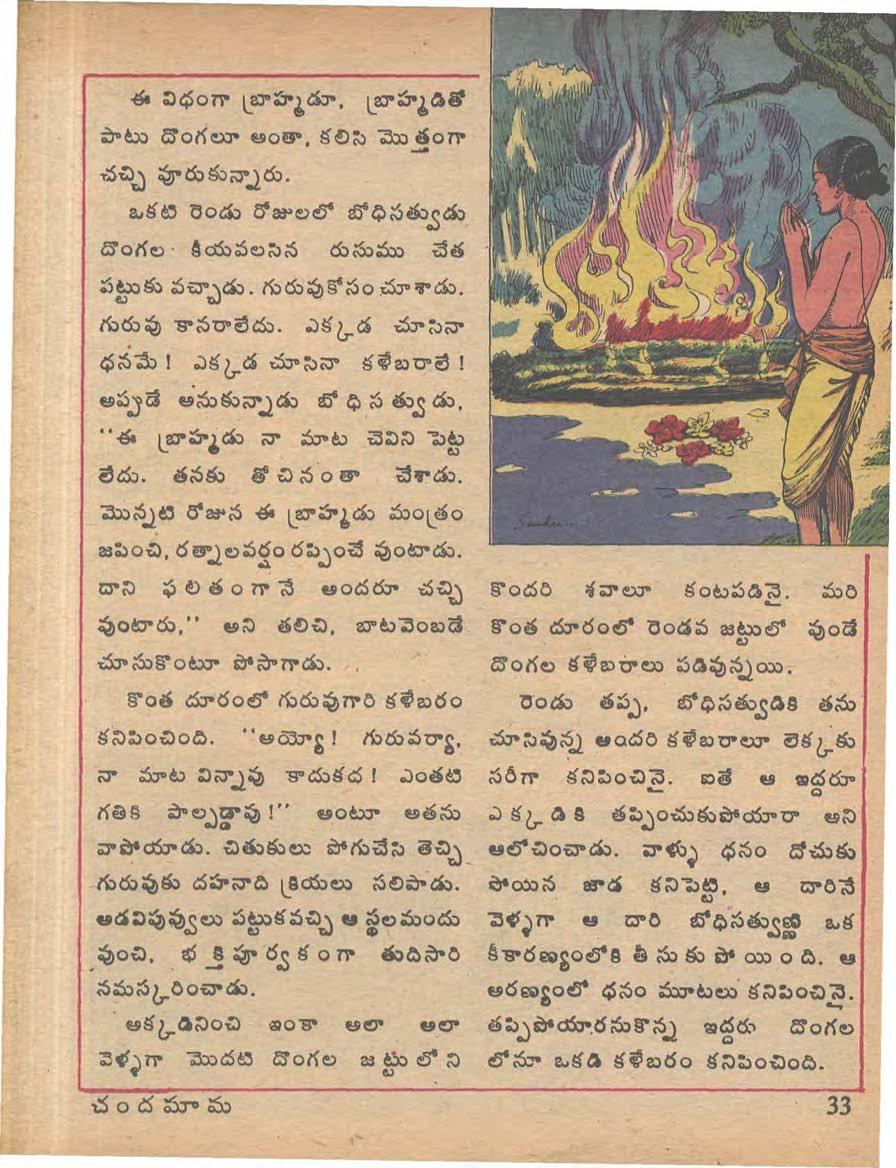 ఈ విధంగా బ్రాహ్మడూ, బ్రాహ్మడితో
పాటు దొంగలూ అంతా, కలిసి మొత్తంగా
చచ్చి వూరుకున్నారు.
ఒకటి రెండు రోజులలో బోధిసత్వుడు
దొంగల కీయవలసిన రుసుము చేత
పట్టుకు వచ్చాడు. గురువుకోసం చూశాడు.
గురువు కానరాలేదు. ఎక్కడ చూసినా
ధనమే! ఎక్కడ చూసినా కళేబరాలే!
అప్పుడే అనుకున్నాడు బోధిసత్వుడు,
‘‘ఈ బ్రాహ్మడు నా మాట చెవిని పెట్ట
లేదు. తనకు తోచినంతా చేశాడు.
మొన్నటి రోజున ఈ బ్రాహ్మడు మంత్రం
జపించి, రత్నాలవర్షం రప్పించే వుంటాడు.
దాని ఫలితంగానే అందరూ చచ్చి
వుంటారు,’’ అని తలిచి, బాటవెంబడే
చూసుకొంటూ పోసాగాడు.
కొంత దూరంలో గురువుగారి కళేబరం
కనిపించింది. ‘‘అయ్యో! గురువర్యా,
నా మాట విన్నావు కాదుకద! ఎంతటి
గతికి పాల్పడ్డావు!’’ అంటూ అతను
వాపోయాడు. చితుకులు పోగుచేసి తెచ్చి
గురువుకు దహనాది క్రియలు సలిపాడు.
అడవిపువ్వులు పట్టుకవచ్చి ఆ స్థలమందు
వుంచి, భక్తిపూర్వకంగా తుదిసారి
నమస్కరించాడు.
అక్కడినించి ఇంకా అలా అలా
వెళ్ళగా మొదటి దొంగల జట్టులోని
కొందరి శవాలూ కంటపడినై. మరి
కొంత దూరంలో రెండవ జట్టులో వుండే
దొంగల కళేబరాలు పడివున్నయి.
రెండు తప్ప, బోధిసత్వుడికి తను
చూసివున్న అందరి కళేబరాలూ లెక్కకు
సరీగా కనిపించినై. ఐతే ఆ ఇద్దరూ
ఎక్కడికి తప్పించుకుపోయారా అని
ఆలోచించాడు. వాళ్ళు ధనం దోచుకు
పోయిన జాడ కనిపెట్టి, ఆ దారినే
వెళ్ళగా ఆ దారి బోధిసత్వుణ్ణి ఒక
కీకారణ్యంలోకి తీసుకుపోయింది. ఆ
అరణ్యంలో ధనం మూటలు కనిపించినై.
తప్పిపోయారనుకొన్న ఇద్దరు దొంగల
లోనూ ఒకడి కళేబరం కనిపించింది.
చందమామ
33